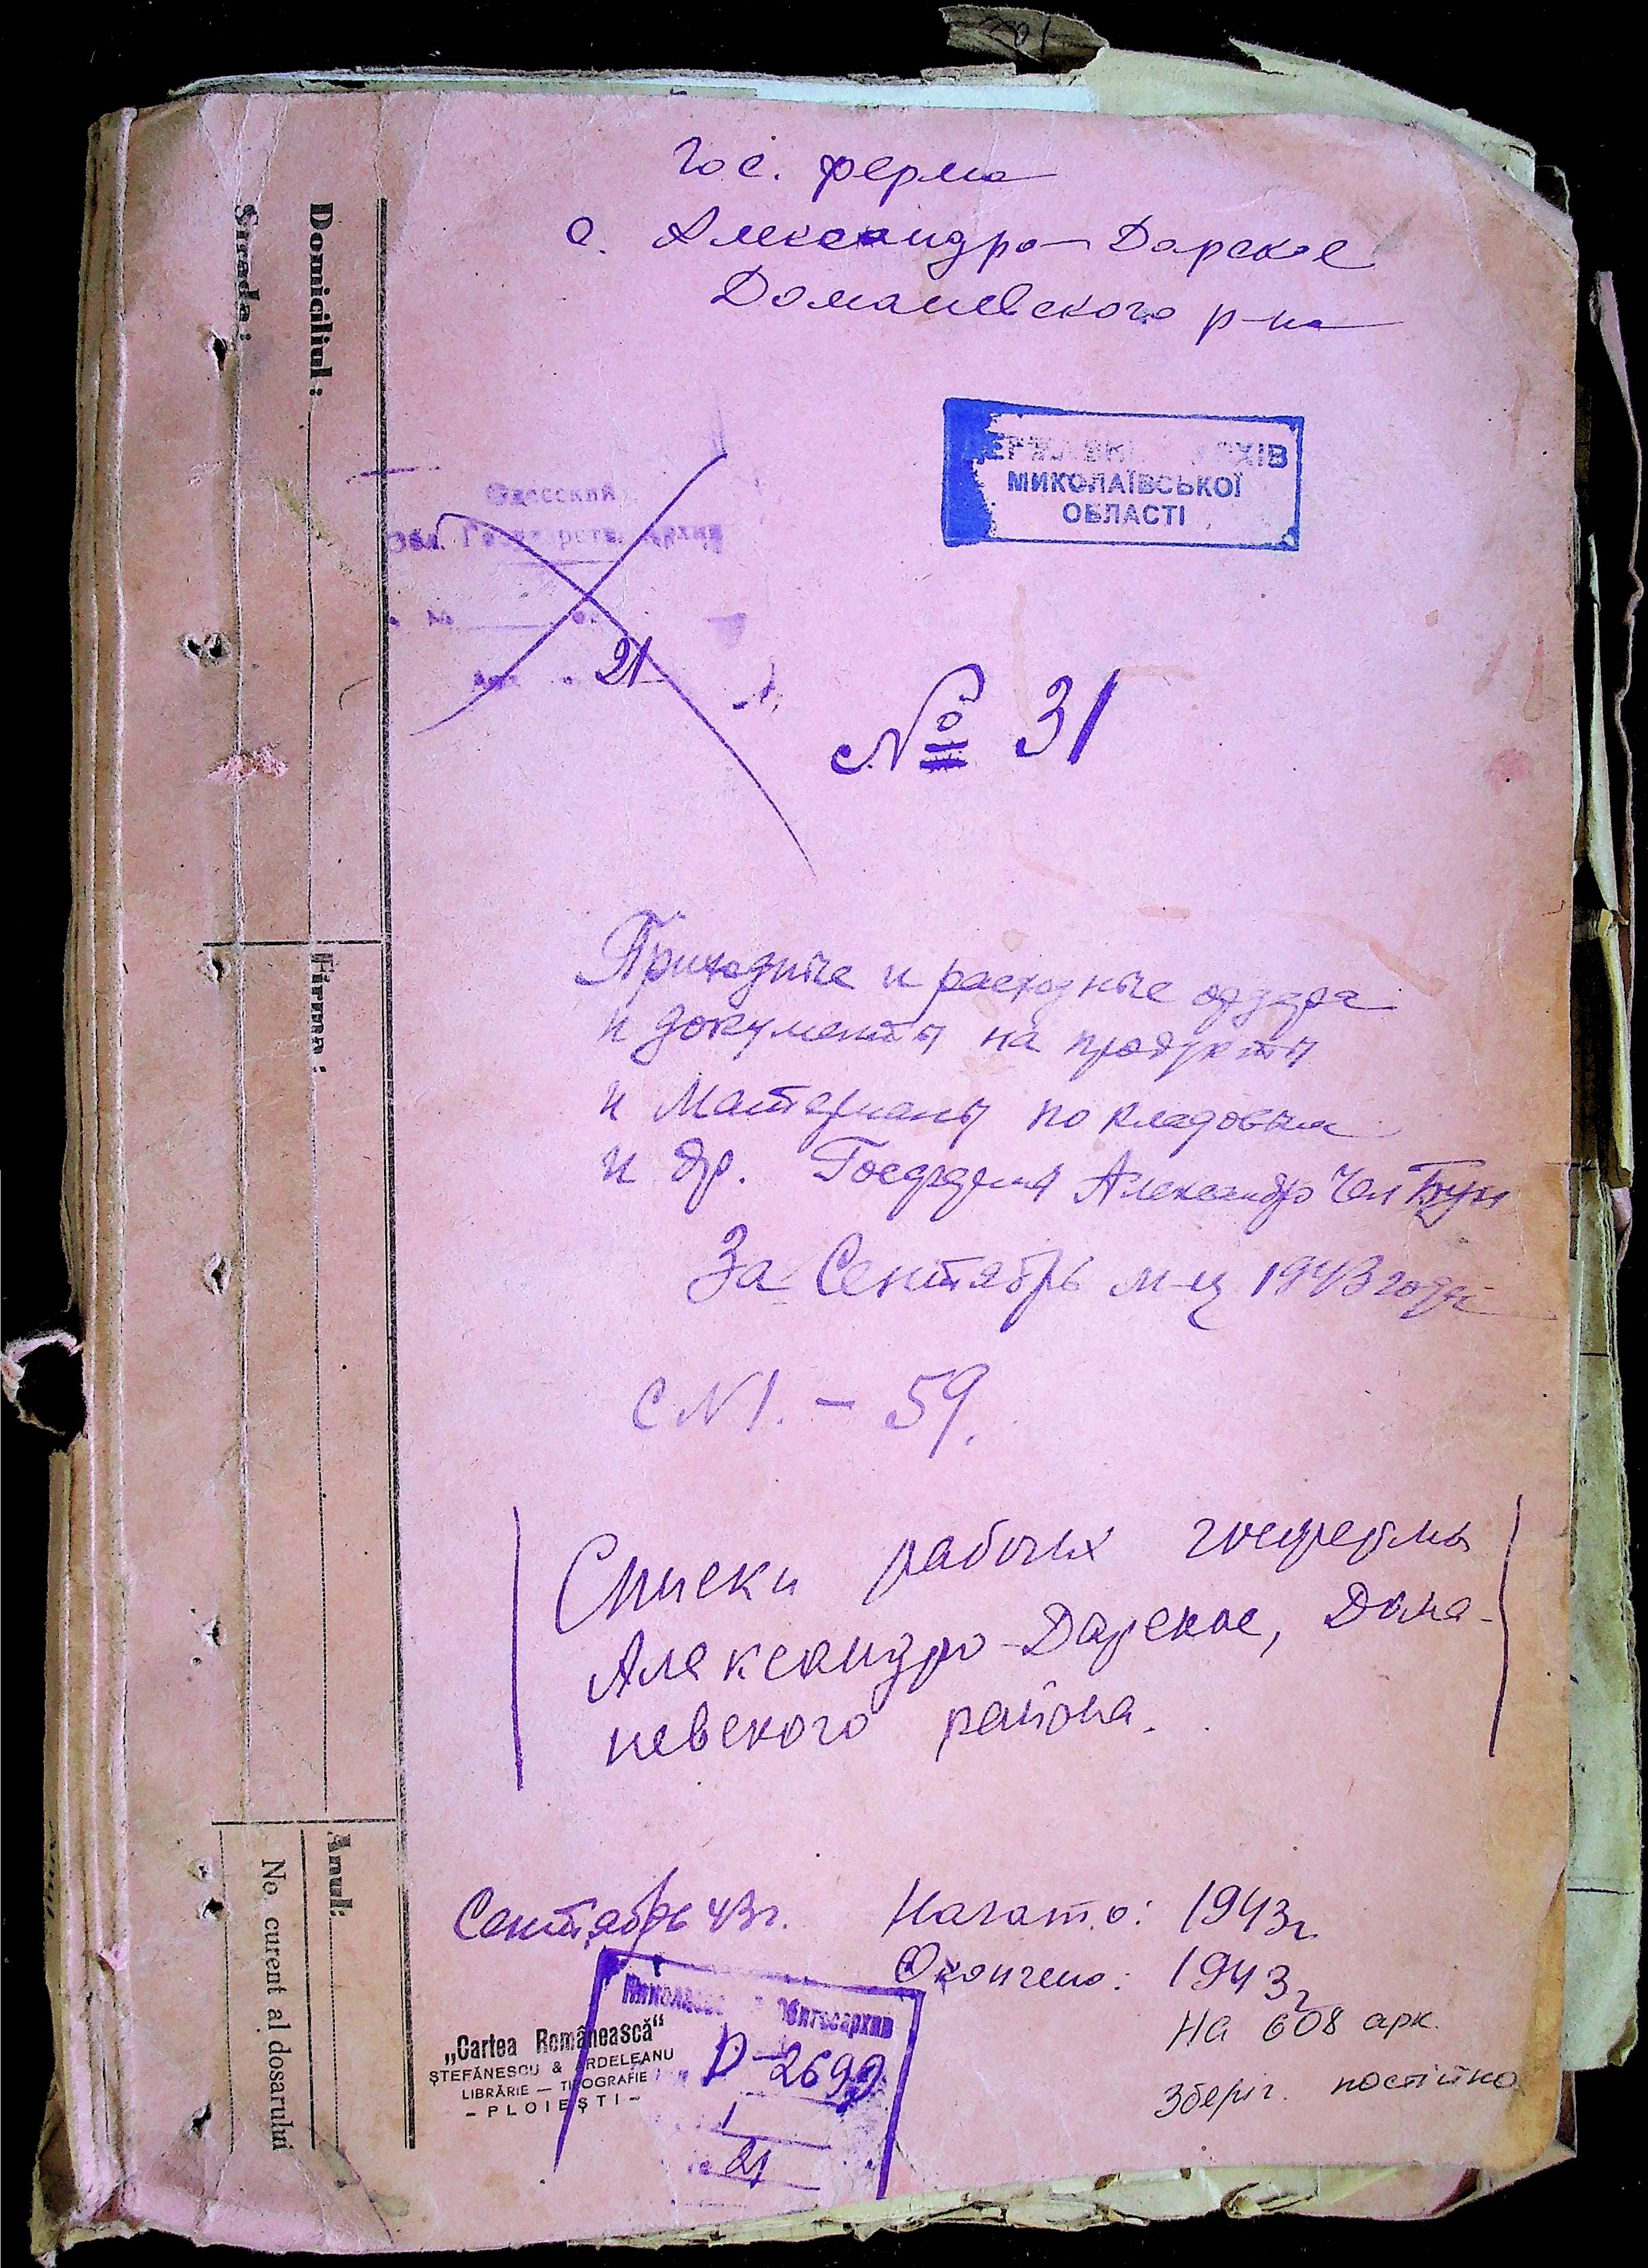 Гос. ферма
с. Александро-Дарское
Доманевского р-на
ДЕРЖАВНИЙ АРХІВ
МИКОЛАЇВСЬКОЇ
ОБЛАСТІ
Одесский
Обл. Государств. Архив
№
21
№ 31
Приходные и расходные ордера
и документы на продукты
и материалы по кладовым
и др. Госферма Александро
За Сентябрь м-ц 1943 года
с N 1. - 59.
Списки рабочих госфермы
Александро-Дарское, Дома-
невского района.
Сентябрь 43г.
Начато: 1943г
Окончено: 1943г
На 608 арк.
Зберіг. постійно
Облгосархив
Р-2699
1
21
„Cartea Românească“
ȘTEFĂNESCU & ARDELEANU
LIBRĂRIE — TIPOGRAFIE
- PLOIEȘTI -
Domiciliul :
Strada :
Firma :
Anul:
No curent al dosarului